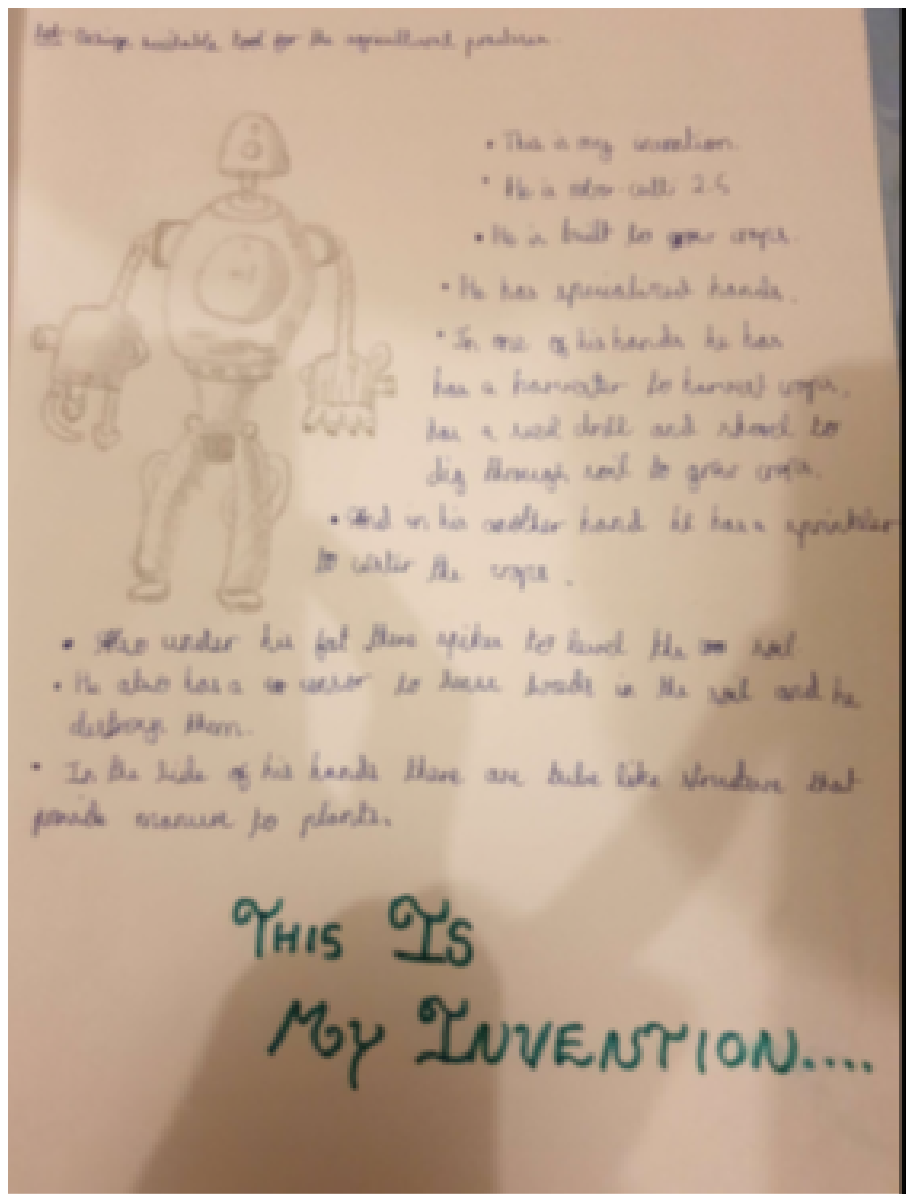 Design suitable tool for the agricultural practices.
• This is my invention.
• He is also call: 2.5
• He is built to grow crops.
• He has specialized hands.
• In one of his hands he has
has a harvester to harvest crops,
has a seed drill and shovel to
dig through soil to grow crops.
• And in his another hand he has a sprinkler
to water the crops.
• Also under his feet there spikes to level the soil
• He also has a sensor to in the soil and he
destroys them.
• In the side of his hands there are tube like structure that
provide manure to plants.
THIS IS
MY INVENTION....